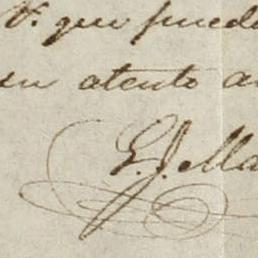 V. que puede
su atento a
G. J. Ma